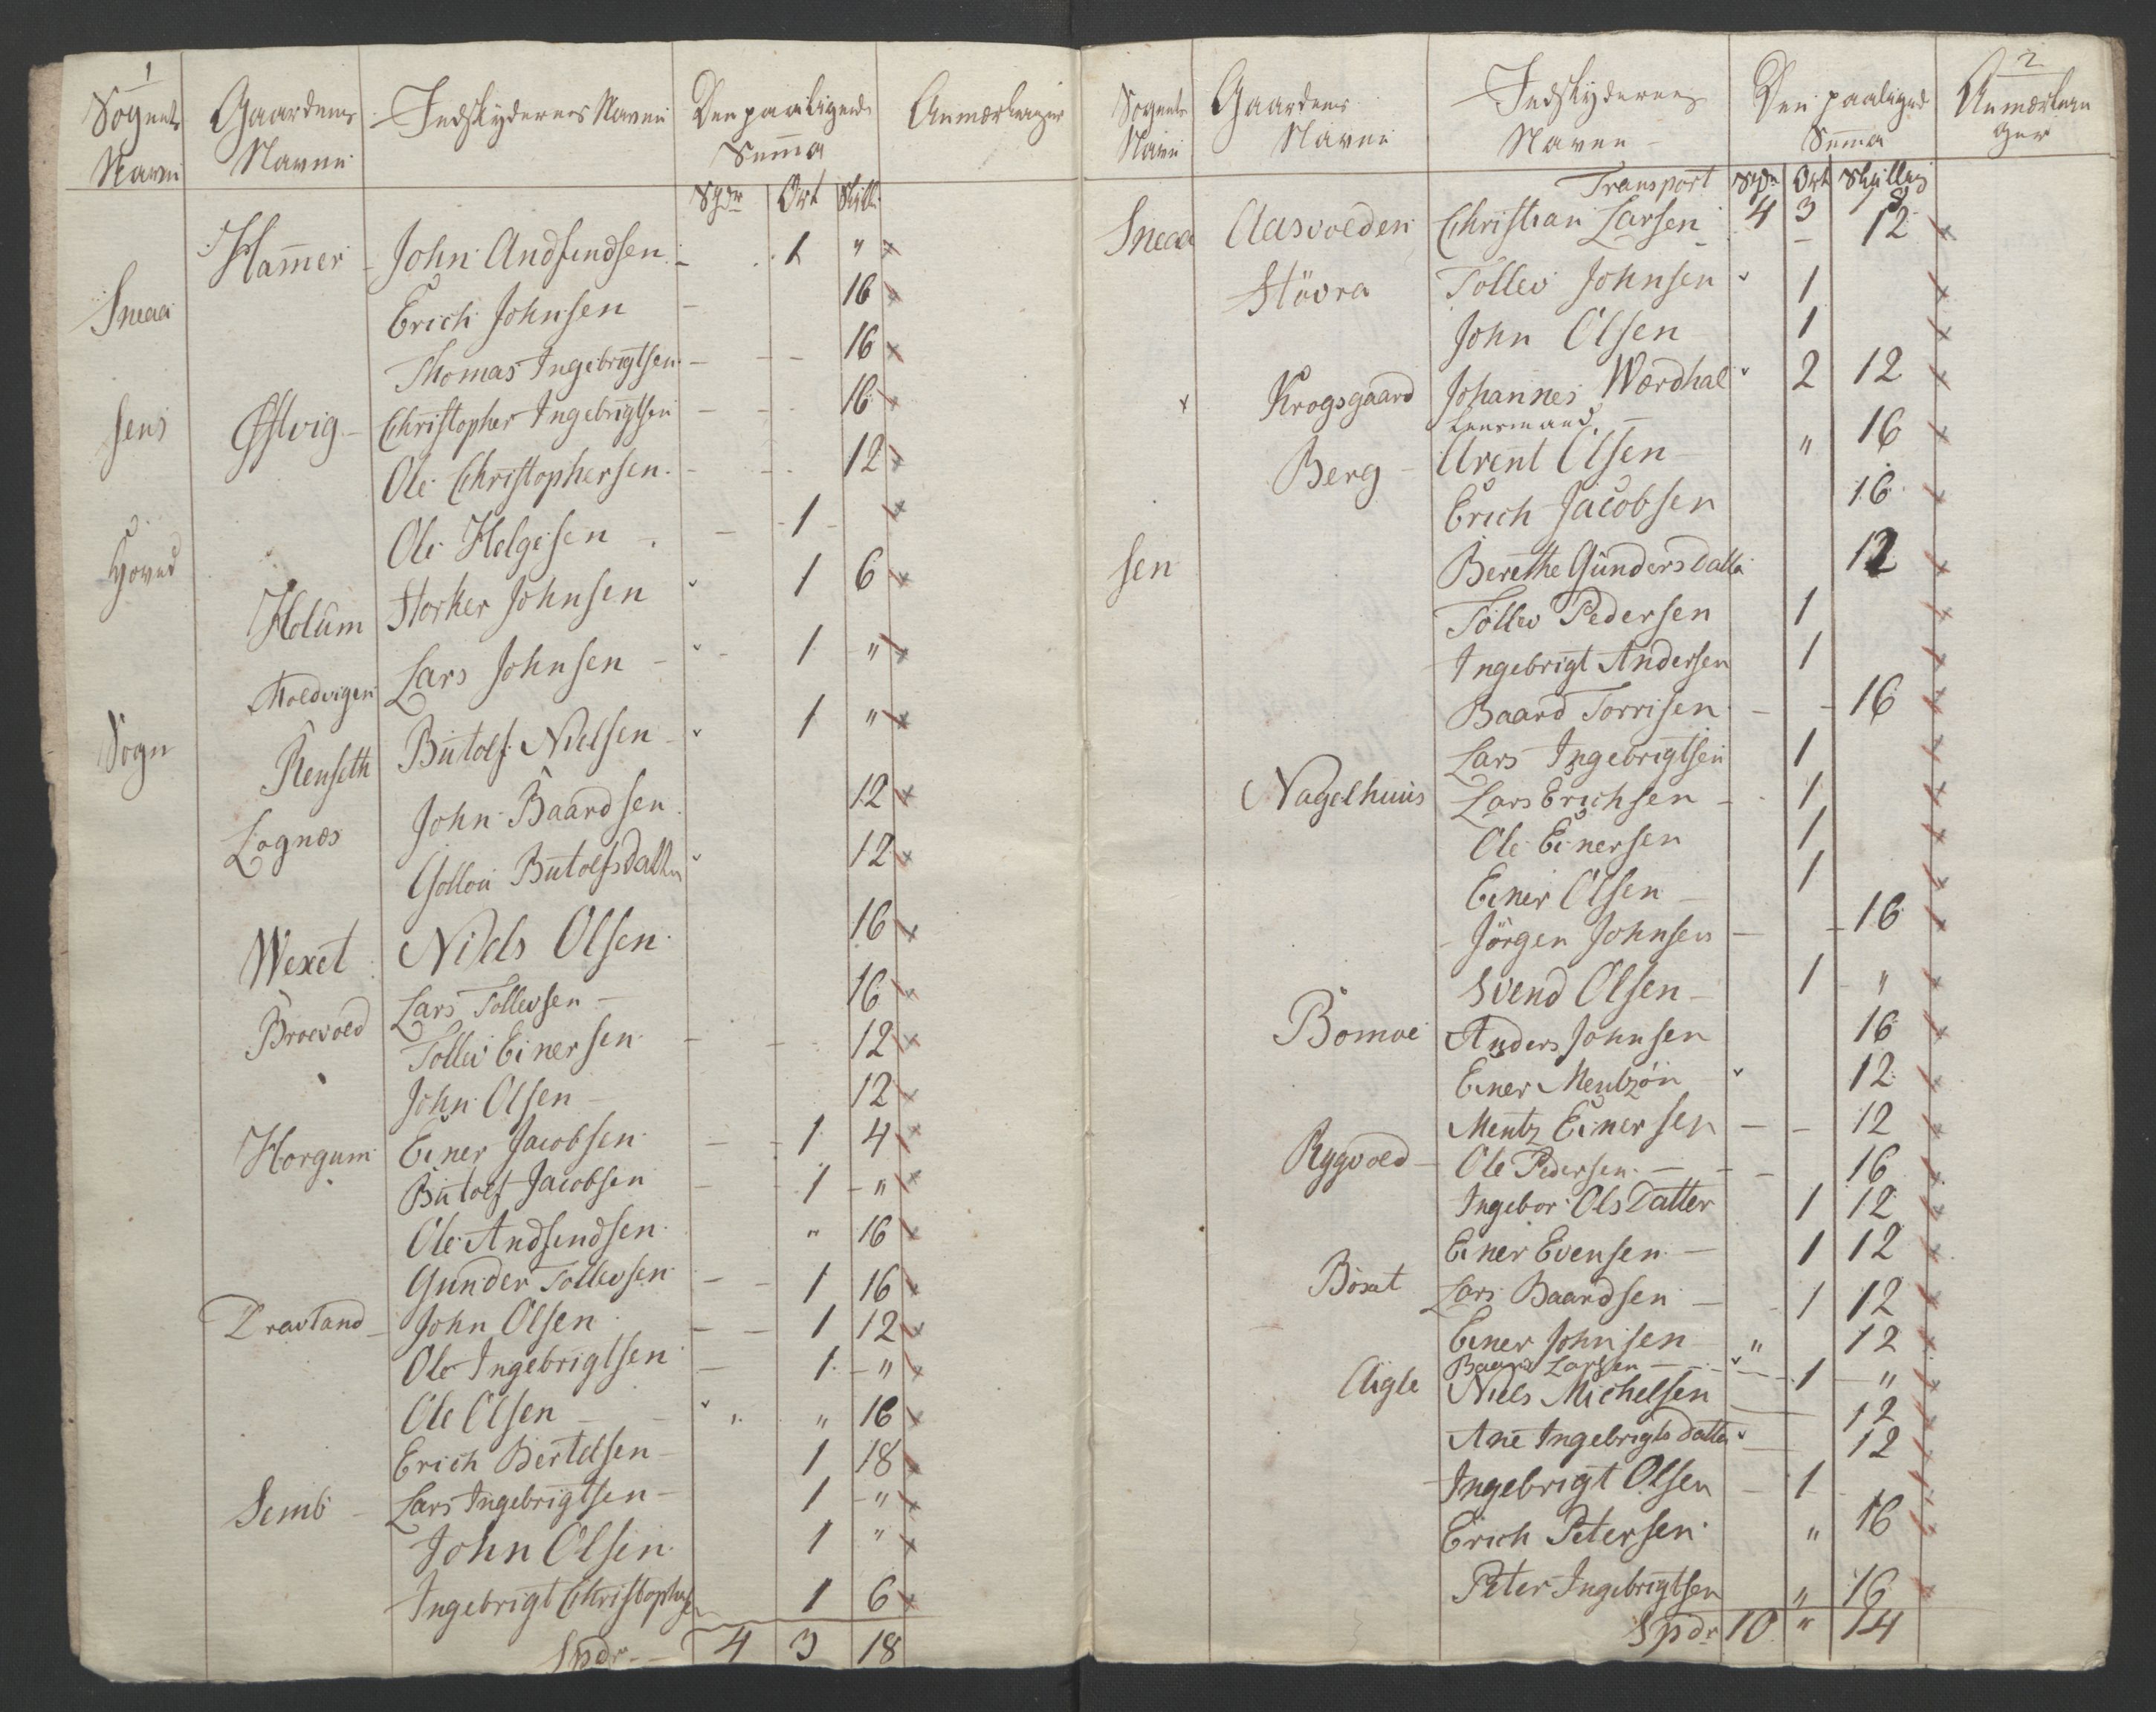 1
Sognets Navn Gaardens Navne Indskydernes Navne Den paaligende Summa Anmærkninger
Spdr Ort Skill.
Hammer John Andfindsen 1 "
Sneaa Erich Johnsen 16
Thomas Ingebrigtsen 16
sens Østvig Christopher Ingebrigtsen 16
Ole Christophersen 12
Ole Helgesen 1
Hoved Holum Storker Johnsen 1 6
Lars Johnsen 1 "
Sogn Renseth Butolf Nielsen 1 "
Lognes John Baardsen 12
Butolfsdatter 12
Wexet Niels Olsen 16
Broevold Lars Tollevsen 16
Tollev Einersen 12
John Olsen 12
Horgum Einer Jacobsen 1 4
Butolf Jacobsen 1 "
Ole Andfindsen " 16
Gunder Tollevsen 1 16
Dravland John Olsen 1 12
Ole Ingebrigtsen 1 "
Ole Olsen " " 16
Erich Bertelsen 1 18
Semb Lars Ingebrigtsen 1 "
John Olsen 1 "
Ingebrigt Christophs 1 6
Spdr 4 3 18
2
Sognets Navn Gaardens Navne Indskydernes Navne Den paaligende Summa Anmærkninger
Transport Spdr Ort Skilling
4 3 18
Sneaa Aasvolden Christian Larsen 12
Stövra Tollev Johnsen 1
John Olsen 1
Krogsgaard Johannes Wærdhal 2 12
Lensmand
Berg Arent Olsen " 16
Erich Jacobsen 16
sen Berethe Gundersdatter 12
Tollev Pedersen 1
Ingebrigt Andersen 1
Baard Torrisen 16
Lars Ingebrigtsen 1
Nagelhuus Lars Erichsen 1
Ole Einersen 1
Einer Olsen 1
Jörgen Johnsen 16
Svend Olsen 1 "
Bomoe Anders Johnsen 16
Einer Mentzön 12
Mentz Einersen 12
Rygvold Ole Pedersen 16
Ingebor Olsdatter 1 12
Einer Evensen 1 12
Lars Baardsen 1 12
Einer Johnsen " 12
Baard Larsen
Aigle Niels Michelsen 1 "
12
Ane Ingebrigtsdatter 12
Ingebrigt Olsen 1
Erich Petersen " 16
Peter Ingebrigtsen " 16
Spdr 10 " 14